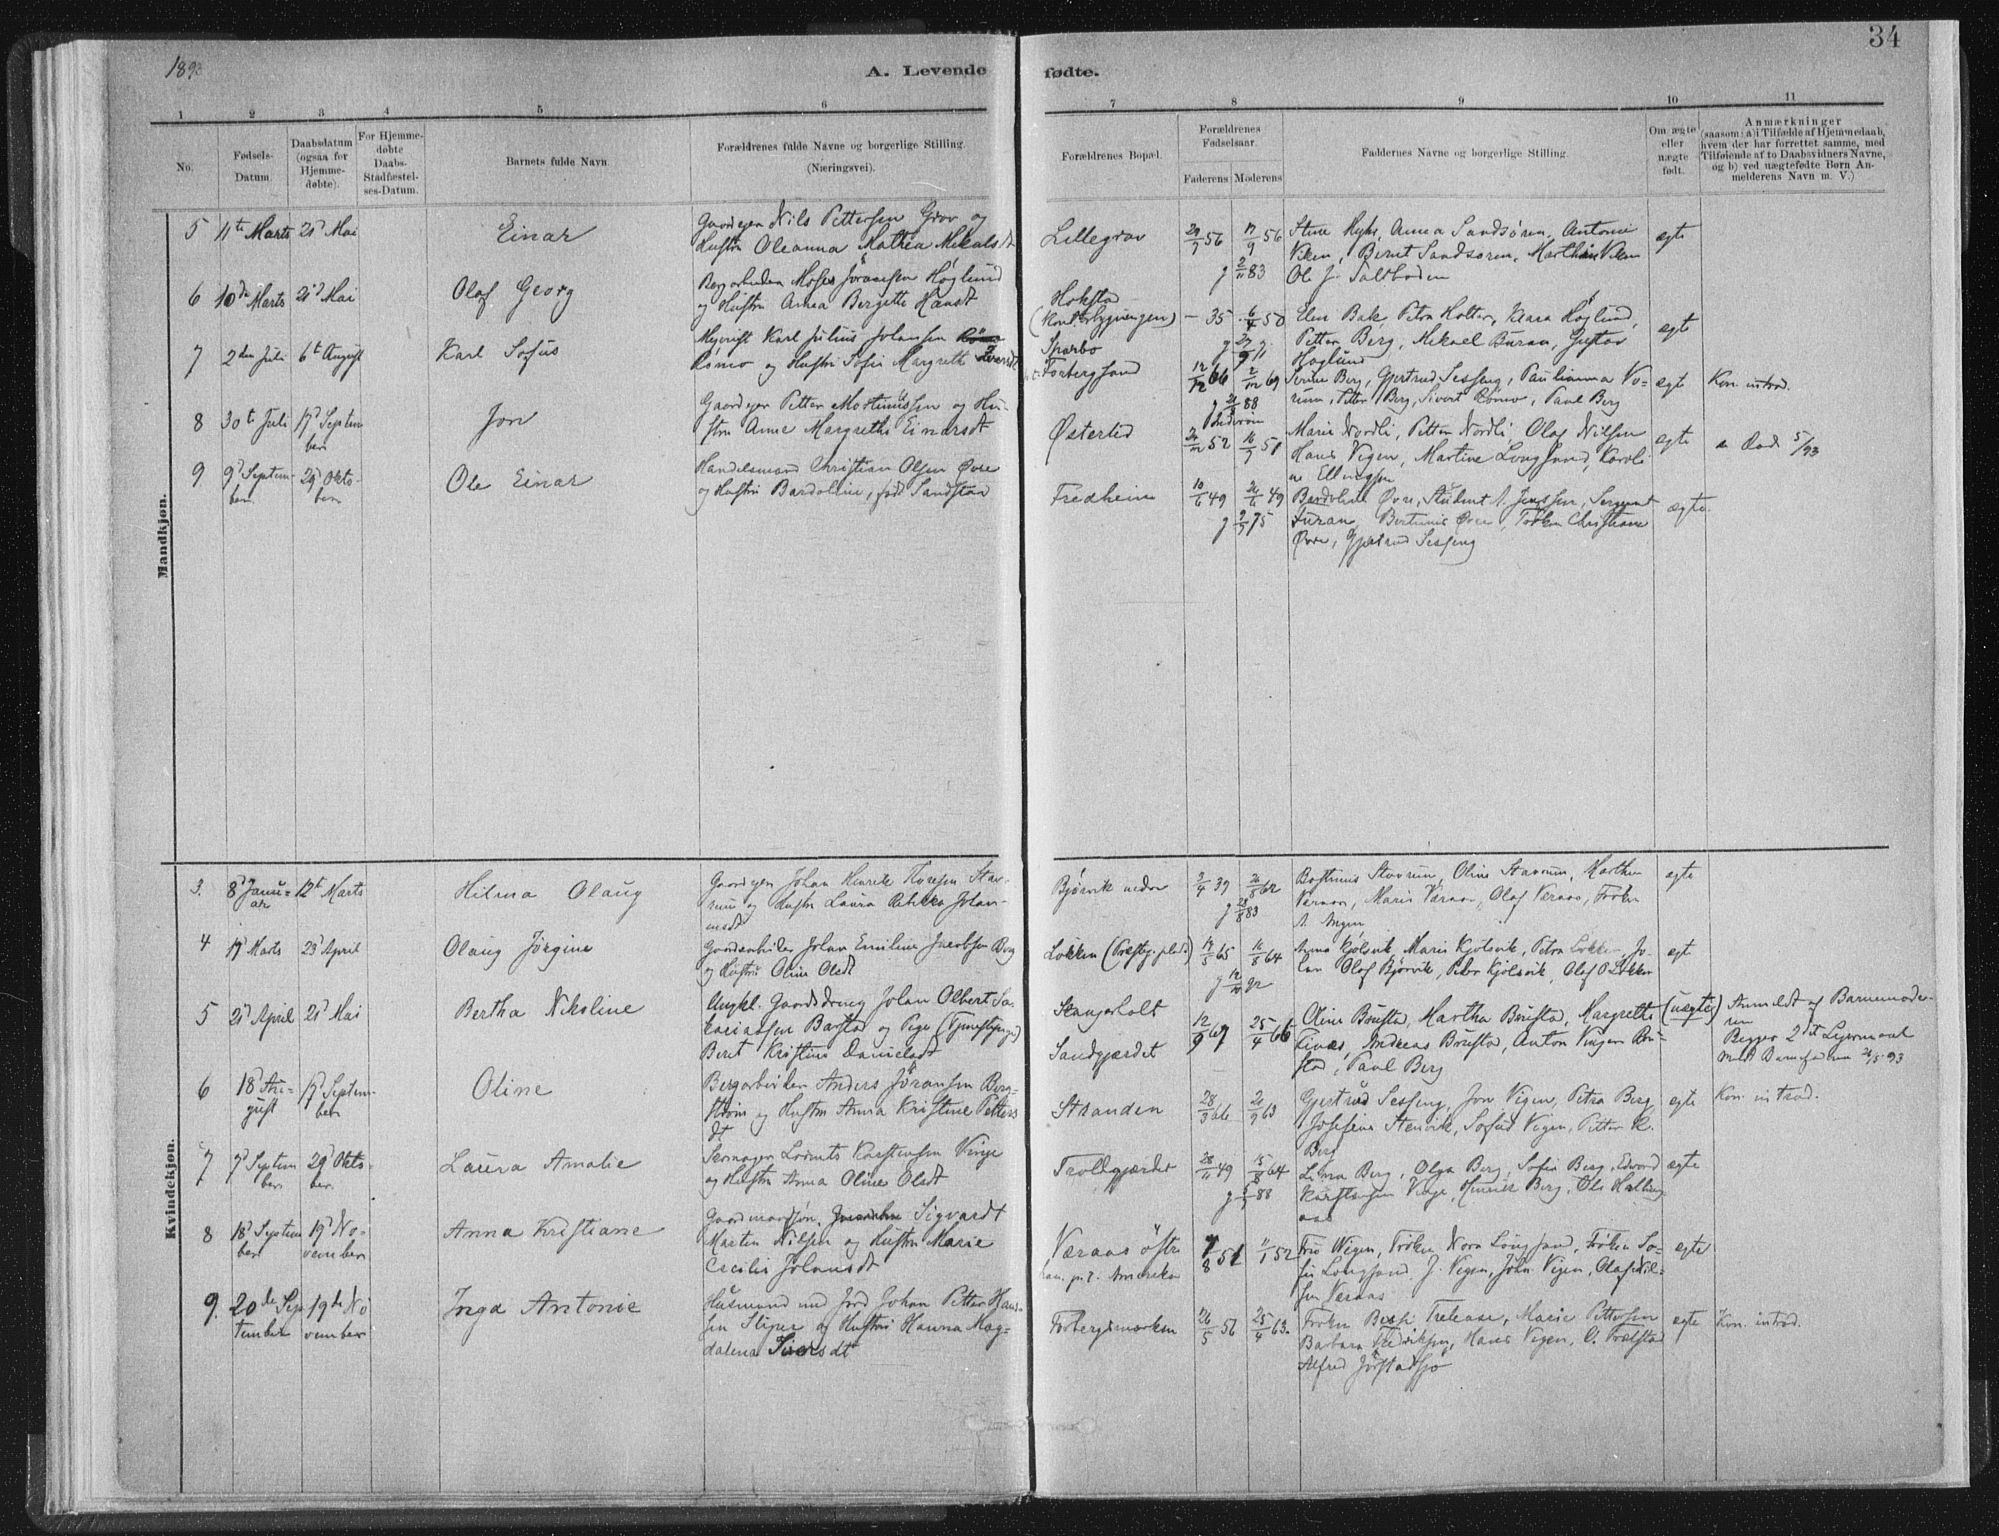 1893
A. Levende fødte.
34
1 2 3 4 5 6 7 8 9 10 11
No.
Fødsels-Datum.
Daabsdatum (ogsaa for Hjemmedøbte).
For Hjemmedøbte Daabs-Stadfæstelses-Datum.
Barnets fulde Navn.
Forældrenes fulde Navne og borgerlige Stilling. (Næringsvei).
Forældrenes Bopæl.
Forældrenes Fødselsaar.
Faderens Moderens
Faddernes Navne og borgerlige Stilling.
Om ægte eller uægte født.
Anmærkninger
(saasom: a) i Tilfælde af Hjemmedaab,
hvem der har forrettet samme, med
Tilføiende af to Daabsvidners Navne,
og b) ved uægtefødte Børn Anmelderens Navn m. V.)
Mandkjøn.
5 11te Marts 21d Mai Einar
Gaardeyer Nils Pettersen Grov og
Hustru Oleanna Mathea Mikalsdt
Lillegrov
29/7 56 17/9 56
g 2/11 83
Stine Myhr, Anna Sandsören, Antonie
Viken, Bernt Sandsören, Marthin Viken
Ole J. Saltboden
ægte
6 10de Marts 21d Mai Olaf Georg
Bergarbeider Moses Jöransen Höglund
og Hustru Anna Bergitte Hansdt
Hokstad
- 35 6/4 50
Elen Bak, Petra Holter, Klara Höglund,
Petter Berg, Mikael Buran, Gustav
Höglund
ægte
7 2den Juli 6te August Karl Sofus
Meierist Karl Julius Johansen
Römo og Hustru Sofie Margrethe
Sparbo
12/12 66 2/12 69
g 88
Serine Berg, Gjertrud Sesseng, Paulianna Vo-
rum, Petter Berg, Sivert Römo, Paul Berg
ægte
Kon. introd.
8 30te Juli 17d September Jon
Gaardeyer Petter Mortinussen og Hu-
stru Anne Margrethe Einarsdt
Østerlid
52 51
Marie Nordli, Petter Nordli, Olaf Nilsen
Hans Vigen, Martine Longsand, Karoli-
ne Ellingsen
ægte
Död 5/93
9 9d September 29d Oktober Ole Einar
Handelsmand Christian Olsen Øvre
og Hustru Bardoline, född Sandstad
Fredheim
10/6 49 49
g 75
Bardoline Øvre, Student A. Jenssen, Sergeant
Furan, Bertinus Øvre, Fröken Christiane
Øvre, Gjertrud Sesseng
ægte.
Kvindekjøn.
3. 8d Januar 12te Marts Hilma Olaug
Gaardeyer Johan Henrik Thoresen Stav-
rum og Hustru Laura Rebekka Johan-
nesdt
Bjørvik nedre
3/4 39 62
g 83
Bastinus Stavrum, Oline Stavrum, Marthea
Værnæs, Marie Værnæs, Olaf Værnæs, Fröken
ægte
4 17d Marts 23d April Olaug Jörgine
Gaardarbeider Johan Emilius Jacobsen Berg
og Hustru Oline Olsdt
Løkken (Præstegj. plads)
65 64
g 92
Anna Kjölsvik, Marie Kjölsvik, Petra Løkken, Jo-
han Olaf Bjørvik, Peter Kjölsvik, Olaf O Løkken
egt
5 21d April 21d Mai Bertha Nikoline
Ungkl. Gaardsdreng Johan Olbert Sa-
kariassen Barstad og Pige (Tjenestepige)
Berit Kristine Danielsdt
Skangerholt
Sandgjerdet
12/9 67 25/4 66
Oline Brustad, Martha Brustad, Margrethe
Livas, Andreas Brustad, Anton Vingen Bru-
stad, Paul Berg
(uægte)
Anmeldt af Barnemode-
ren
Begges 2det Leiermaal
6 18d August 17d September Oline
Bergarbeider Anders Jöransen Berg-
ström og Hustru Anna Kristine Petters
dt
Stranden
28/3 66 63
Gjertrud Sesseng, Jon Vigen, Petra Berg
Josefine Stenvik, Sofus Vigen, Petter K.
Berg
egte
Kon. introd.
7 7d September 29d Oktober Laura Amalie
Stenager Lorents Karstensen Vinje
og Hustru Anna Oline Olsdt
Trollgjerdet
28/11 49 15/8 64
g 88
Lina Berg, Olga Berg, Sofie Berg, Edvard
Karstensen Vinje, Henrik Berg, Ole Halling-
aas
ægte
8 18d September 19d November Anna Kristiane
Gaardmandssön Sigvardt
Martin Nilsen og Hustru Marie
Cecilie Johansdt
Værnæs östre
han p. t. Amerika
7/8 51 11/1 52
Fru Wigen, Fröken Nora Longsand, Fröken So-
fie Longsand, J. Vigen, John Vigen, Olaf Nil-
sen Værnæs
ægte
9. 20de September 19de November Inga Antonie
Husmand med Jord Johan Petter Han-
sen Stiper og Hustru Hanna Mag-
dalena Siversdt
Forbergsmarken
26/5 56 25/4 63.
Fröken Bessi Trelease, Marie Pettersen
Barbara Fredriksen, Hans Vigen, C. Prætstad
Alfred Jörstadsjö
egte
Kon. introd.